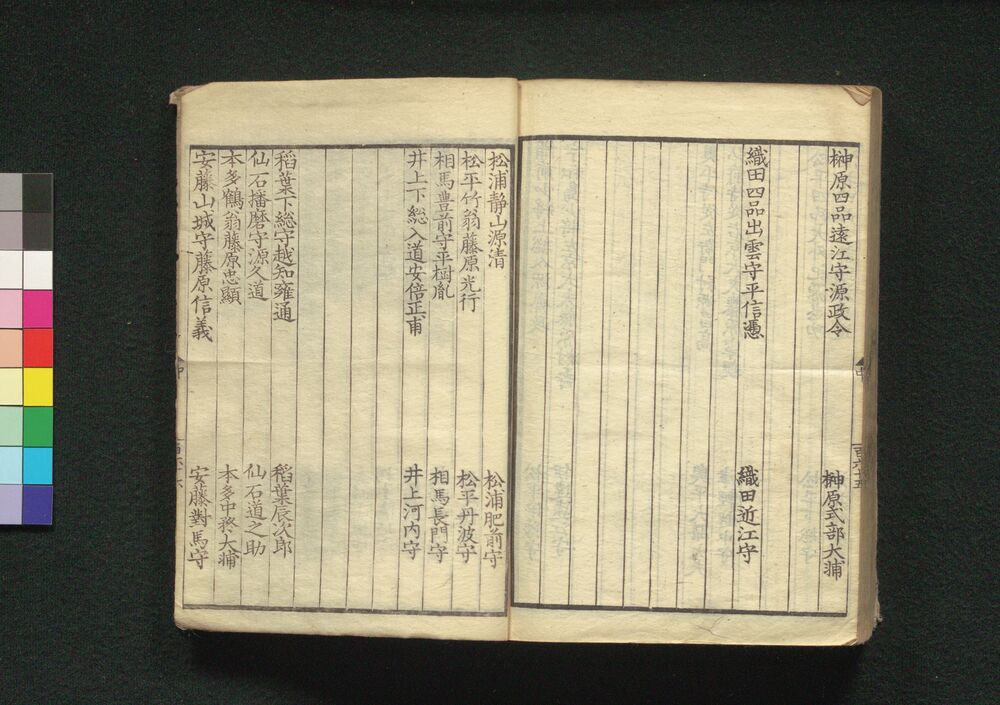 榊原四品遠江守源政令
榊原式部大輔
織田四品出雲守平信憑
織田近江守
中
百六十五
松浦靜山源清
松浦肥前守
松平竹翁藤原光行
松平丹波守
相馬豊前守平樹胤
相馬長門守
井上下総入道安倍正甫
井上河内守
稻葉下総守越知雍通
稻葉辰次郎
仙石播磨守源久道
仙石道之助
本多鶴翁藤原忠顯
本多中務大輔
安藤山城守藤原信義
安藤對馬守
中